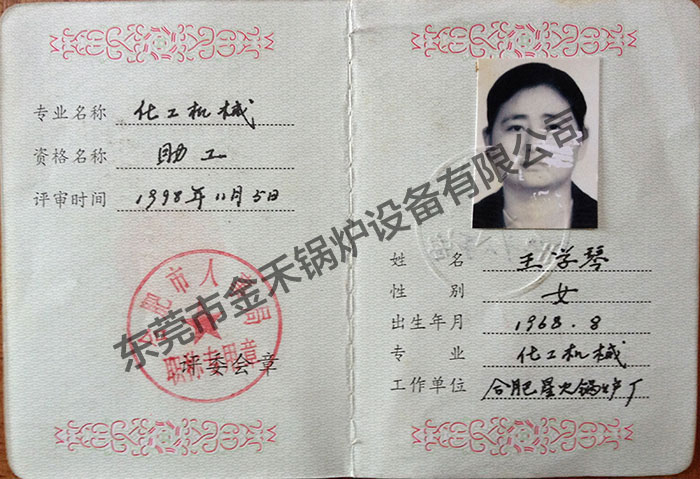 专业名称 化工机械
资格名称 助工
评审时间 1998年11月5日
合肥市人事局
职称专用章
评委会章
姓名 王学琴
性别 女
出生年月 1968.8
专业 化工机械
工作单位 合肥星火锅炉厂
东莞市金禾锅炉设备有限公司